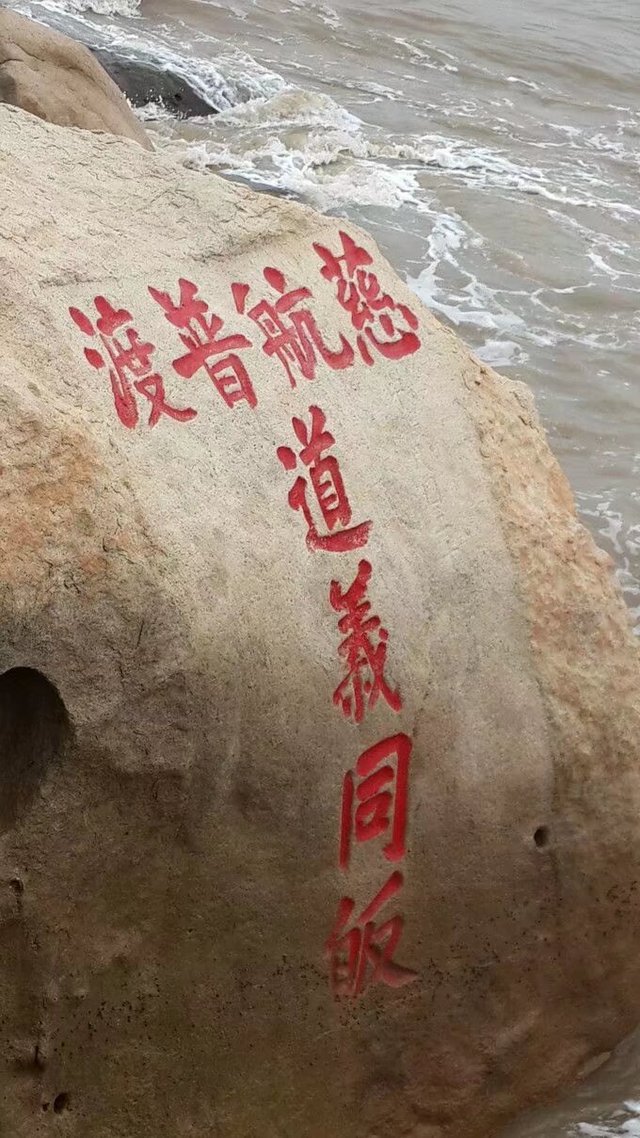 慈航普渡
道義同皈